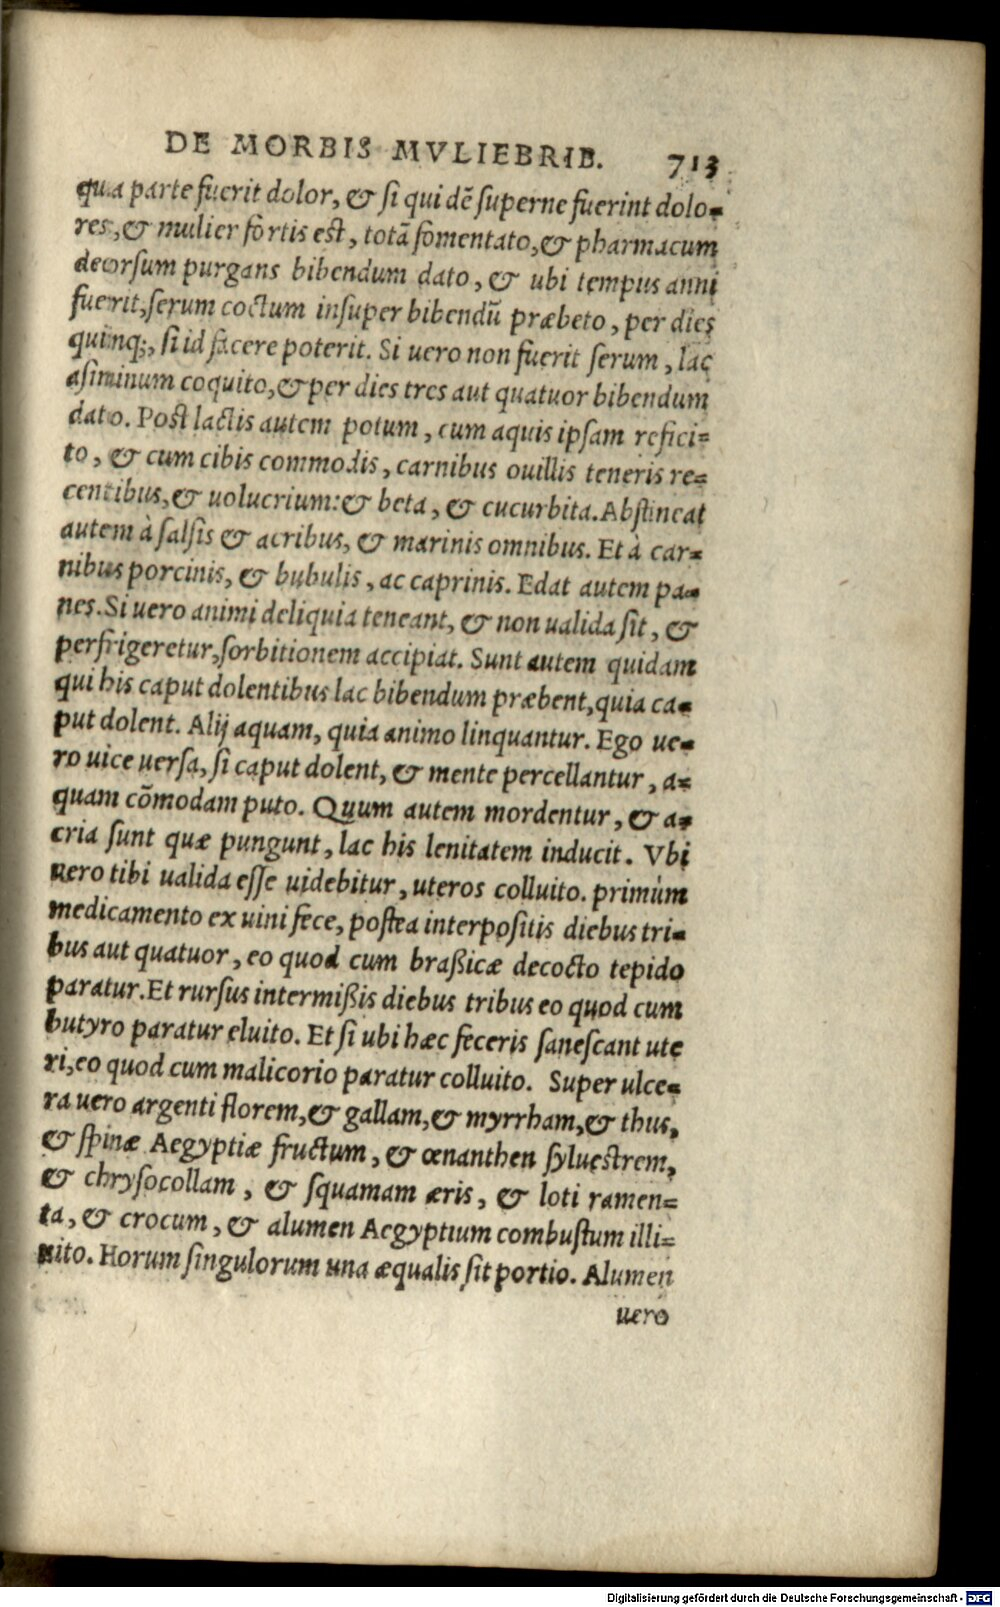 DE MORBIS MVLIEBRIB. 713
qua parte fuerit dolor, & ſi qui dē ſuperne fuerint dolo-
res, & mulier fortis eſt, totā fomentato, & pharmacum
deorſum purgans bibendum dato, & ubi tempus anni
fuerit, ſerum coctum inſuper bibendū præbeto, per dies
quinq;, ſi id facere poterit. Si uero non fuerit ſerum, lac
aſininum coquito, & per dies tres aut quatuor bibendum
dato. Poſt lactis autem potum, cum aquis ipſam refici=
to, & cum cibis commodis, carnibus ouillis teneris re=
centibus, & uolucrium: & beta, & cucurbita. Abſtineat
autem à ſalſis & acribus, & marinis omnibus. Et à car-
nibus porcinis, & bubulis, ac caprinis. Edat autem pa-
nes. Si uero animi deliquia teneant, & non ualida ſit, &
perfrigeretur, ſorbitionem accipiat. Sunt autem quidam
qui his caput dolentibus lac bibendum præbent, quia ca-
put dolent. Alij aquam, quia animo linquantur. Ego ue-
ro uice uerſa, ſi caput dolent, & mente percellantur, a=
quam cōmodam puto. Quum autem mordentur, & a-
cria ſunt quæ pungunt, lac his lenitatem inducit. Vbi
uero tibi ualida eſſe uidebitur, uteros colluito. primùm
medicamento ex uini fece, poſtea interpoſitis diebus tri-
bus aut quatuor, eo quod cum braßicæ decocto tepido
paratur. Et rurſus intermißis diebus tribus eo quod cum
butyro paratur eluito. Et ſi ubi hæc feceris ſaneſcant ute
ri, eo quod cum malicorio paratur colluito. Super ulce-
ra uero argenti florem, & gallam, & myrrham, & thus,
& ſpinæ Aegyptiæ fructum, & œnanthen ſylueſtrem,
& chryſocollam, & ſquamam æris, & loti ramen=
ta, & crocum, & alumen Aegyptium combuſtum illi=
nito. Horum ſingulorum una æqualis ſit portio. Alumen
uero
Digitalisierung gefördert durch die Deutsche Forschungsgemeinschaft - DFG